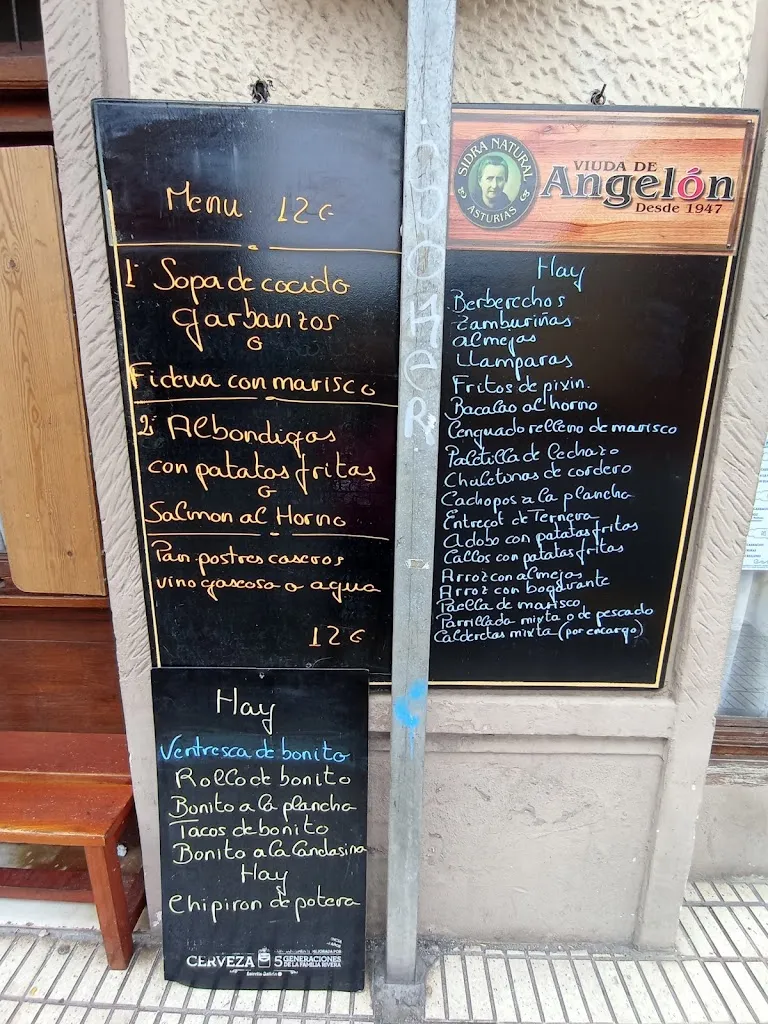 Menu 12€
1º Sopa de cocido
garbanzos
o
Fideua con marisco
2º Albondigas
con patatas fritas
o
Salmon al Horno
Pan postres caseros
vino gaseosa o agua
12€
SIDRA NATURAL
ASTURIAS
VIUDA DE
Angelón
Desde 1947
Hay
Berberechos
Zamburiñas
almejas
Llamparas
Fritos de pixin.
Bacalao al horno
Lenguado relleno de marisco
Paletilla de Lechazo
Chuletinas de cordero
Cachopos a la plancha
Entrecot de Ternera
Adobo con patatas fritas
Callos con patatas fritas
Arroz con almejas
Arroz con bogavante
Paella de marisco
Parrillada mixta o de pescado
Calderetas mixta (por encargo)
Hay
Ventresca de bonito
Rollo de bonito
Bonito a la plancha
Tacos de bonito
Bonito a la Candasina
Hay
Chipiron de potera
CERVEZA 5 GENERACIONES
DE LA FAMILIA RIVERA
Estrella Galicia